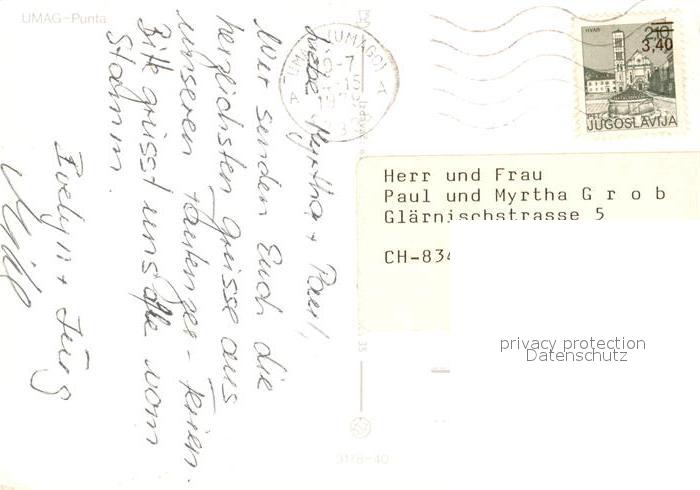 UMAG-Punta
Liebe Myrtha + Paul,
Wir senden Euch die
herzlichsten Grüsse aus
unseren Ferien.
Bitte grüsst uns alle vom
Stamm.
Evelyn + Jürg
UMAG (UMAGO)
HVAR
2,10
3,40
PTT
JUGOSLAVIJA
Herr und Frau
Paul und Myrtha G r o b
Glärnischstrasse 5
CH-834
privacy protection
Datenschutz
3178-40